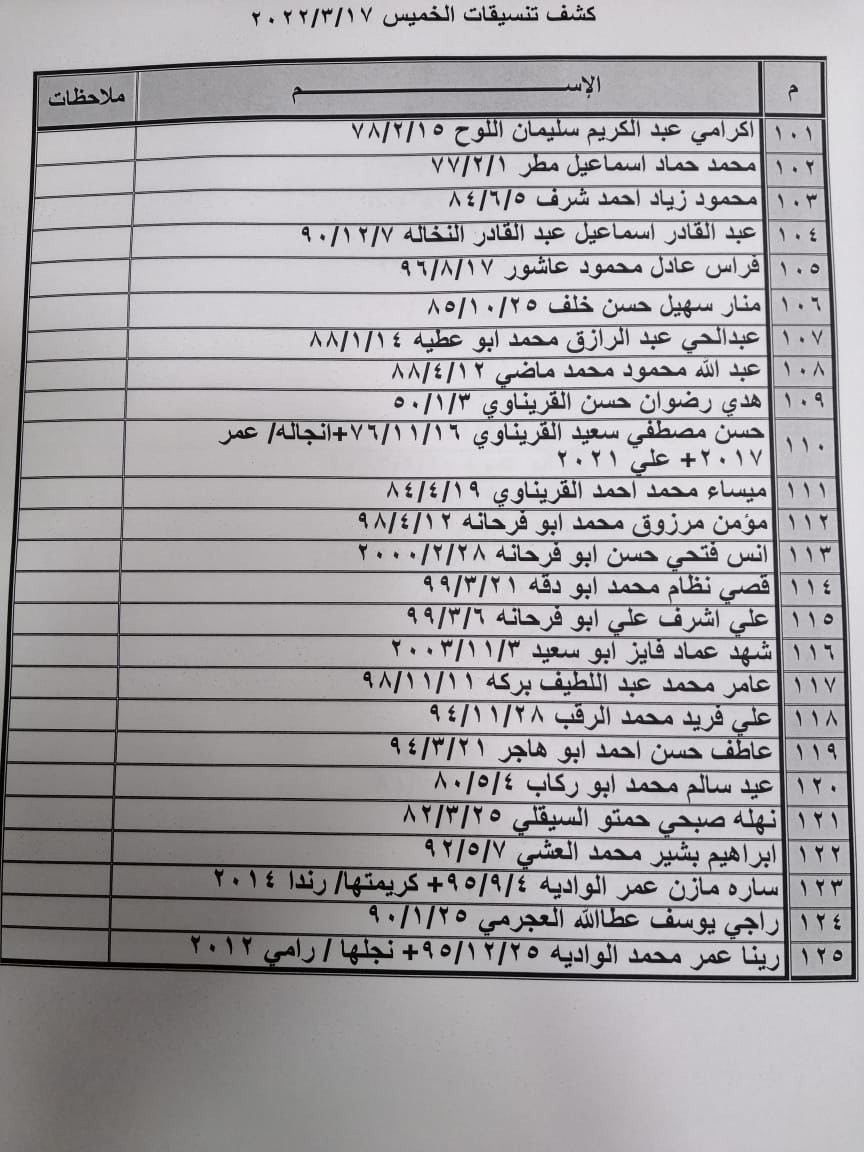 كشف تنسيقات الخميس ٢٠٢٢/٣/١٧
م الإســـــــــــــــم ملاحظات
١٠١ اكرامي عبد الكريم سليمان اللوح ٧٨/٢/١٥
١٠٢ محمد حماد اسماعيل مطر ٧٧/٢/١
١٠٣ محمود زياد احمد شرف ٨٤/٦/٥
١٠٤ عبد القادر اسماعيل عبد القادر النخاله ٩٠/١٢/٧
١٠٥ فراس عادل محمود عاشور ٩٦/٨/١٧
١٠٦ منار سهيل حسن خلف ٨٥/١٠/٢٥
١٠٧ عبدالحي عبد الرازق محمد ابو عطيه ٨٨/١/١٤
١٠٨ عبد الله محمود محمد ماضي ٨٨/٤/١٢
١٠٩ هدي رضوان حسن القريناوي ٥٠/١/٣
١١٠ حسن مصطفي سعيد القريناوي ٧٦/١١/١٦+انجاله/ عمر
٢٠١٧+ علي ٢٠٢١
١١١ ميساء محمد احمد القريناوي ٨٤/٤/١٩
١١٢ مؤمن مرزوق محمد ابو فرحانه ٩٨/٤/١٢
١١٣ انس فتحي حسن ابو فرحانه ٢٠٠٠/٢/٢٨
١١٤ قصي نظام محمد ابو دقه ٩٩/٣/٢١
١١٥ علي اشرف علي ابو فرحانه ٩٩/٣/٦
١١٦ شهد عماد فايز ابو سعيد ٢٠٠٣/١١/٣
١١٧ عامر محمد عبد اللطيف بركه ٩٨/١١/١١
١١٨ علي فريد محمد الرقب ٩٤/١١/٢٨
١١٩ عاطف حسن احمد ابو هاجر ٩٤/٣/٢١
١٢٠ عيد سالم محمد ابو ركاب ٨٠/٥/٤
١٢١ نهله صبحي حمتو السيقلي ٨٢/٣/٢٥
١٢٢ ابراهيم بشير محمد العشي ٩٢/٥/٧
١٢٣ ساره مازن عمر الواديه ٩٥/٩/٤+ كريمتها/ رندا ٢٠١٤
١٢٤ راجي يوسف عطاالله العجرمي ٩٠/١/٢٥
١٢٥ رينا عمر محمد الواديه ٩٥/١٢/٢٥+ نجلها / رامي ٢٠١٢